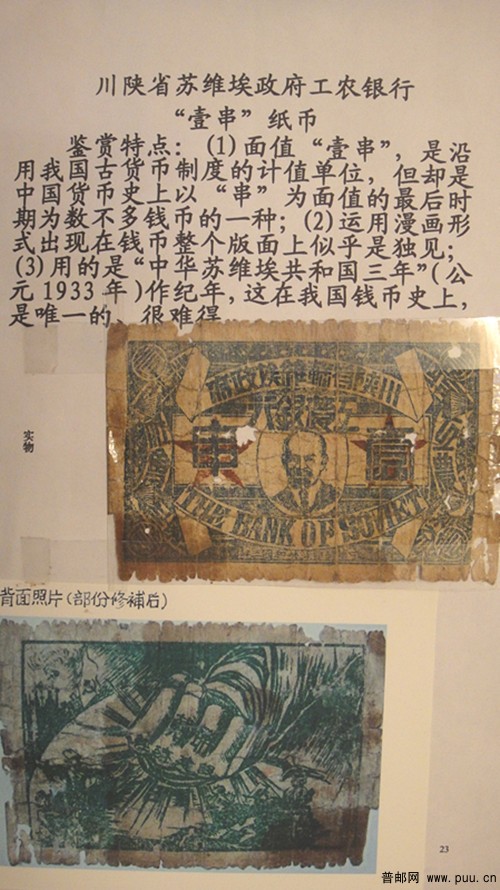 川陕省苏维埃政府工农银行
“壹串”纸币
鉴赏特点：(1)面值“壹串”，是沿
用我国古货币制度的计值单位，但却是
中国货币史上以“串”为面值的最后时
期为数不多钱币的一种；(2)运用漫画形
式出现在钱币整个版面上似乎是独见；
(3)用的是“中华苏维埃共和国三年”(公
元1933年)作纪年，这在我国钱币史上，
是唯一的、很难得
实物
府政埃維蘇省陝川
行銀農工
串 壹
THE BANK OF SOVIET
背面照片(部份修補后)
23
普邮网 www.puu.cn